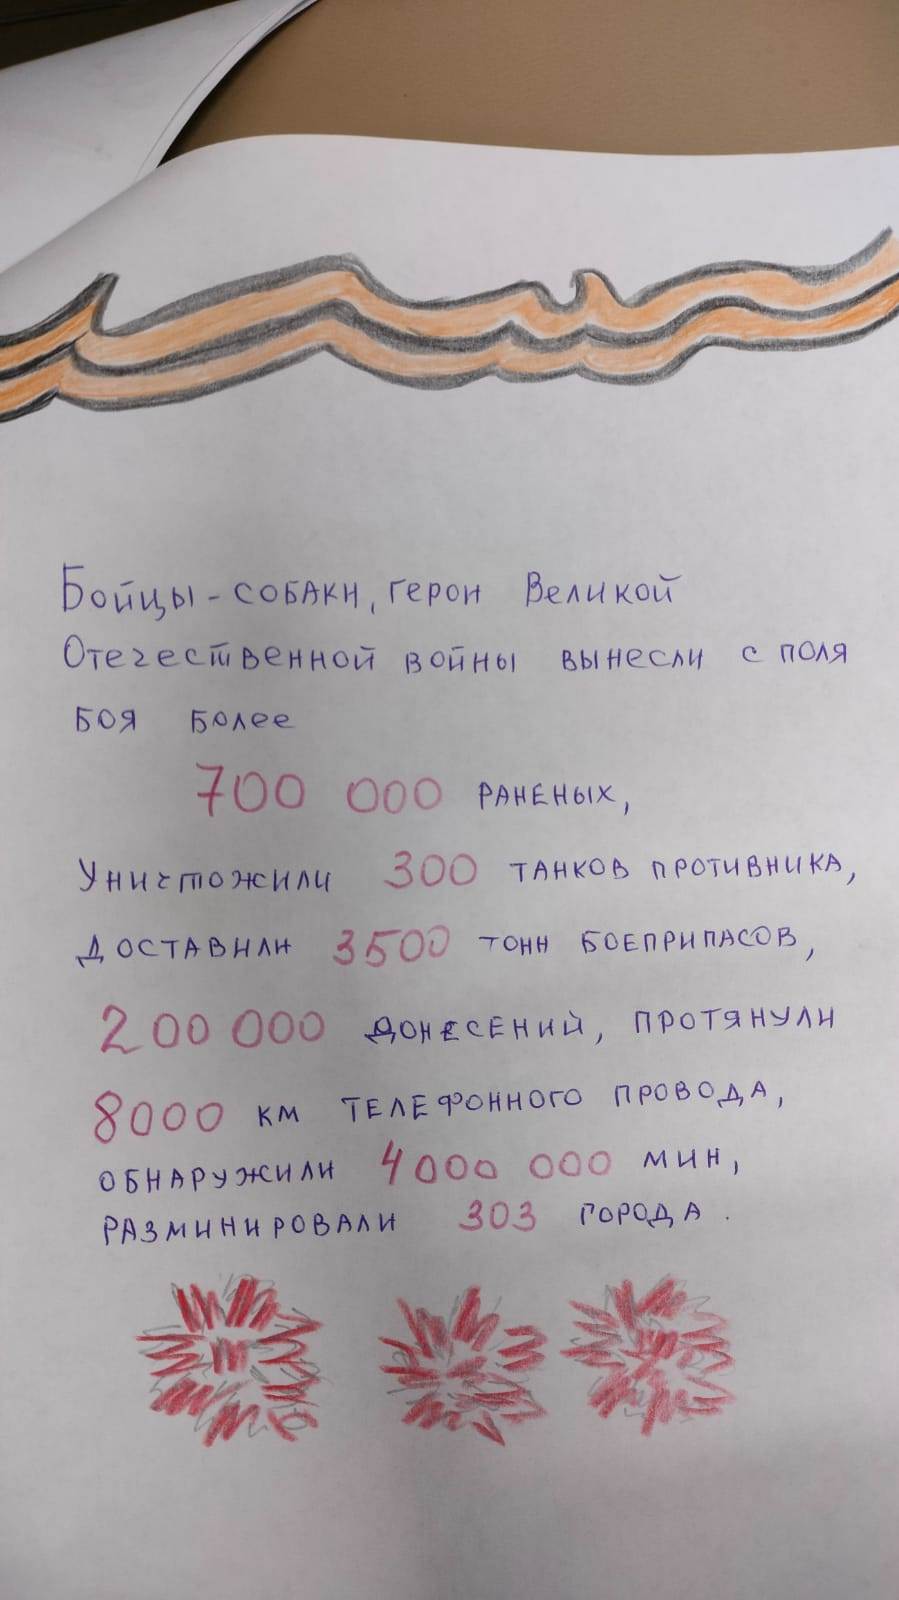 Бойцы-собаки, герои Великой
Отечественной войны вынесли с поля
боя более
700 000 раненых,
Уничтожили 300 танков противника,
доставили 3500 тонн боеприпасов,
200 000 донесений, протянули
8000 км телефонного провода,
обнаружили 4000 000 мин,
разминировали 303 города.